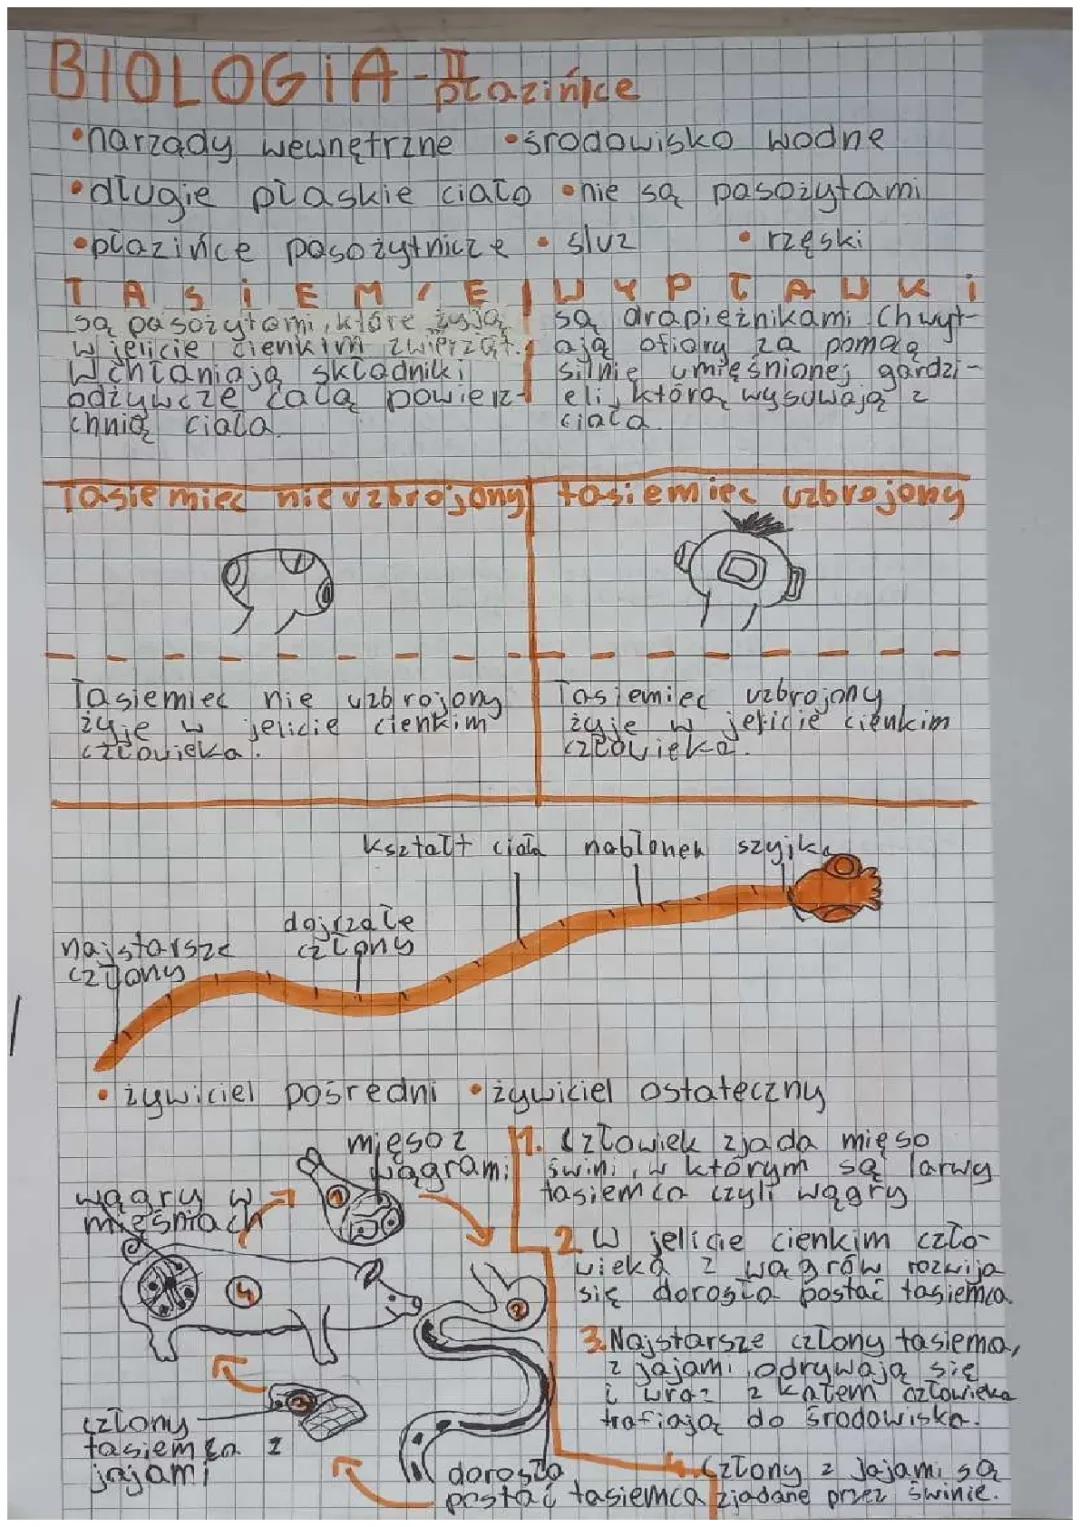 BIOLOGIA - II
płazińce
•narządy wewnętrzne •środowisko wodne
•długie płaskie ciało •nie są pasożytami
•płazińce pasożytnicze •śluz •rzęski
TASIEMCE
są pasożytami, które żyją
w jelicie cienkim zwierząt.
Wchłaniają składniki
odżywcze całą powierz-
chnią ciała.
WYPŁAWKI
są drapieżnikami. Chwyt-
ają ofiary za pomocą
silnie umięśnionej gardzi-
eli, którą wysuwają z
ciała.
Tasiemiec nieuzbrojony
tasiemiec uzbrojony
Tasiemiec nie uzbrojony
żyje w jelicie cienkim
człowieka.
Tasiemiec uzbrojony
żyje w jelicie cienkim
człowieka.
kształt ciała nabłonek szyjka
dojrzałe
człony
najstarsze
człony
• żywiciel pośredni • żywiciel ostateczny
mięso z
wągrami
wągry w
mięśniach
1
4
2
3
człony
tasiemca z
jajami
dorosła
postać tasiemca
1. Człowiek zjada mięso
świni, w którym są larwy
tasiemca czyli wągry
2. W jelicie cienkim czło-
wieka z wągrów rozwija
się dorosła postać tasiemca.
3. Najstarsze człony tasiema,
z jajami odrywają się
i wraz z kałem człowieka
trafiają do środowiska.
4. Człony z jajami są
zjadane przez świnie.